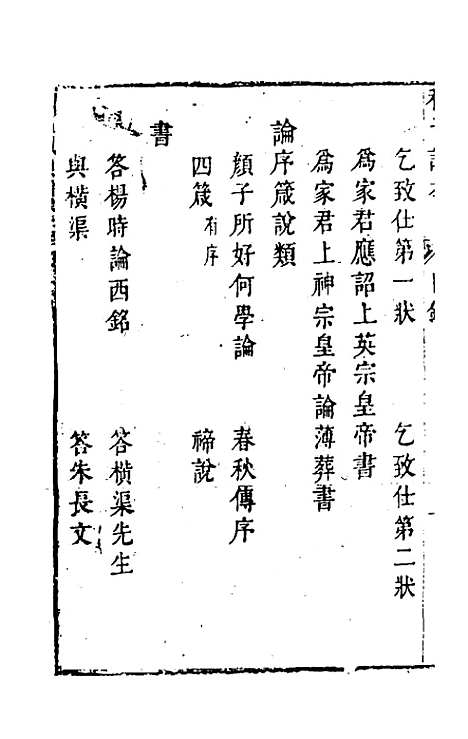 乞致仕第一狀　乞致仕第二狀
爲家君應詔上英宗皇帝書
爲家君上神宗皇帝論薄葬書
論序箴說類
顏子所好何學論　春秋傳序
四箴有序　禘說
書
答楊時論西銘　答橫渠先生
與橫渠　答朱長文